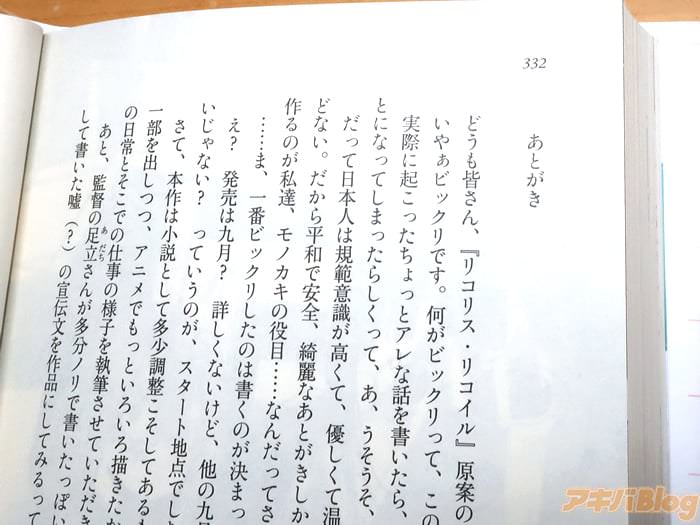 332
あとがき
どうも皆さん、『リコリス・リコイル』原案の
いやぁビックリです。何がビックリって、この
実際に起こったちょっとアレな話を書いたら、
とになってしまったらしくって、あ、うそうそ、
だって日本人は規範意識が高くて、優しくて温
どない。だから平和で安全、綺麗なあとがきしか
作るのが私達、モノカキの役目……なんだってさ
……ま、一番ビックリしたのは書くのが決まっ
え？　発売は九月？　詳しくないけど、他の九月
いじゃない？　っていうのが、スタート地点でし
さて、本作は小説として多少調整こそしてあるも
一部を出しつつ、アニメでもっといろいろ描きたか
の日常とそこでの仕事の様子を執筆させていただき
あと、監督の足立さんが多分ノリで書いたっぽい
あだち
して書いた嘘（？）の宣伝文を作品にしてみるって
アキバBlog